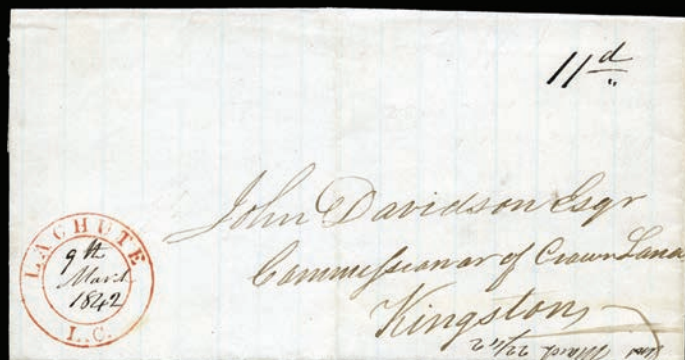 11d
John Davidson Esqr
Commissionar of Crown Land
Kingston
LACHUTE
9th
March
1842
L.C.
March 22/42